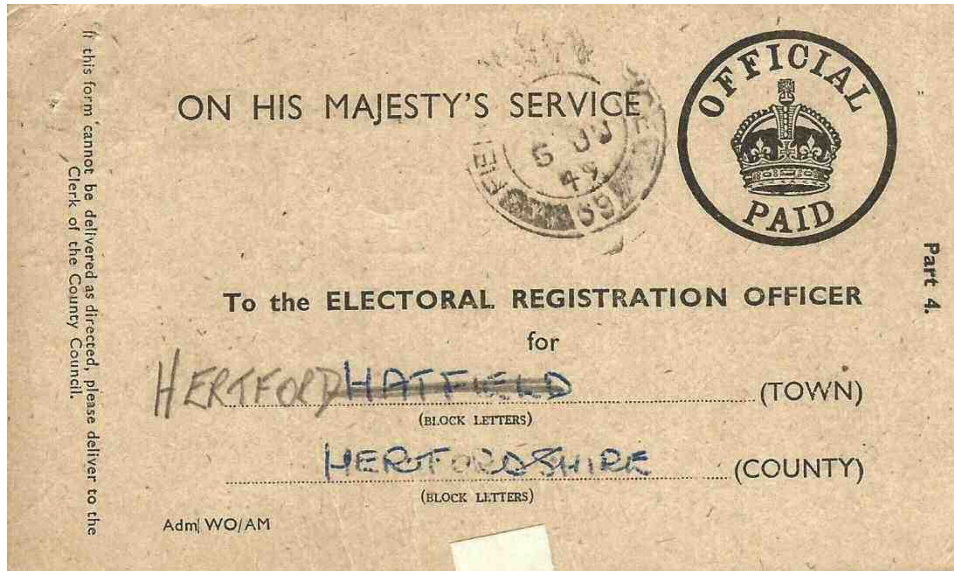 If this form cannot be delivered as directed, please deliver to the
Clerk of the County Council.
ON HIS MAJESTY'S SERVICE
OFFICIAL
PAID
49
Part 4.
To the ELECTORAL REGISTRATION OFFICER
for
HERTFORD HATFIELD (TOWN)
(BLOCK LETTERS)
HERTFORDSHIRE (COUNTY)
(BLOCK LETTERS)
Adm/WO/AM